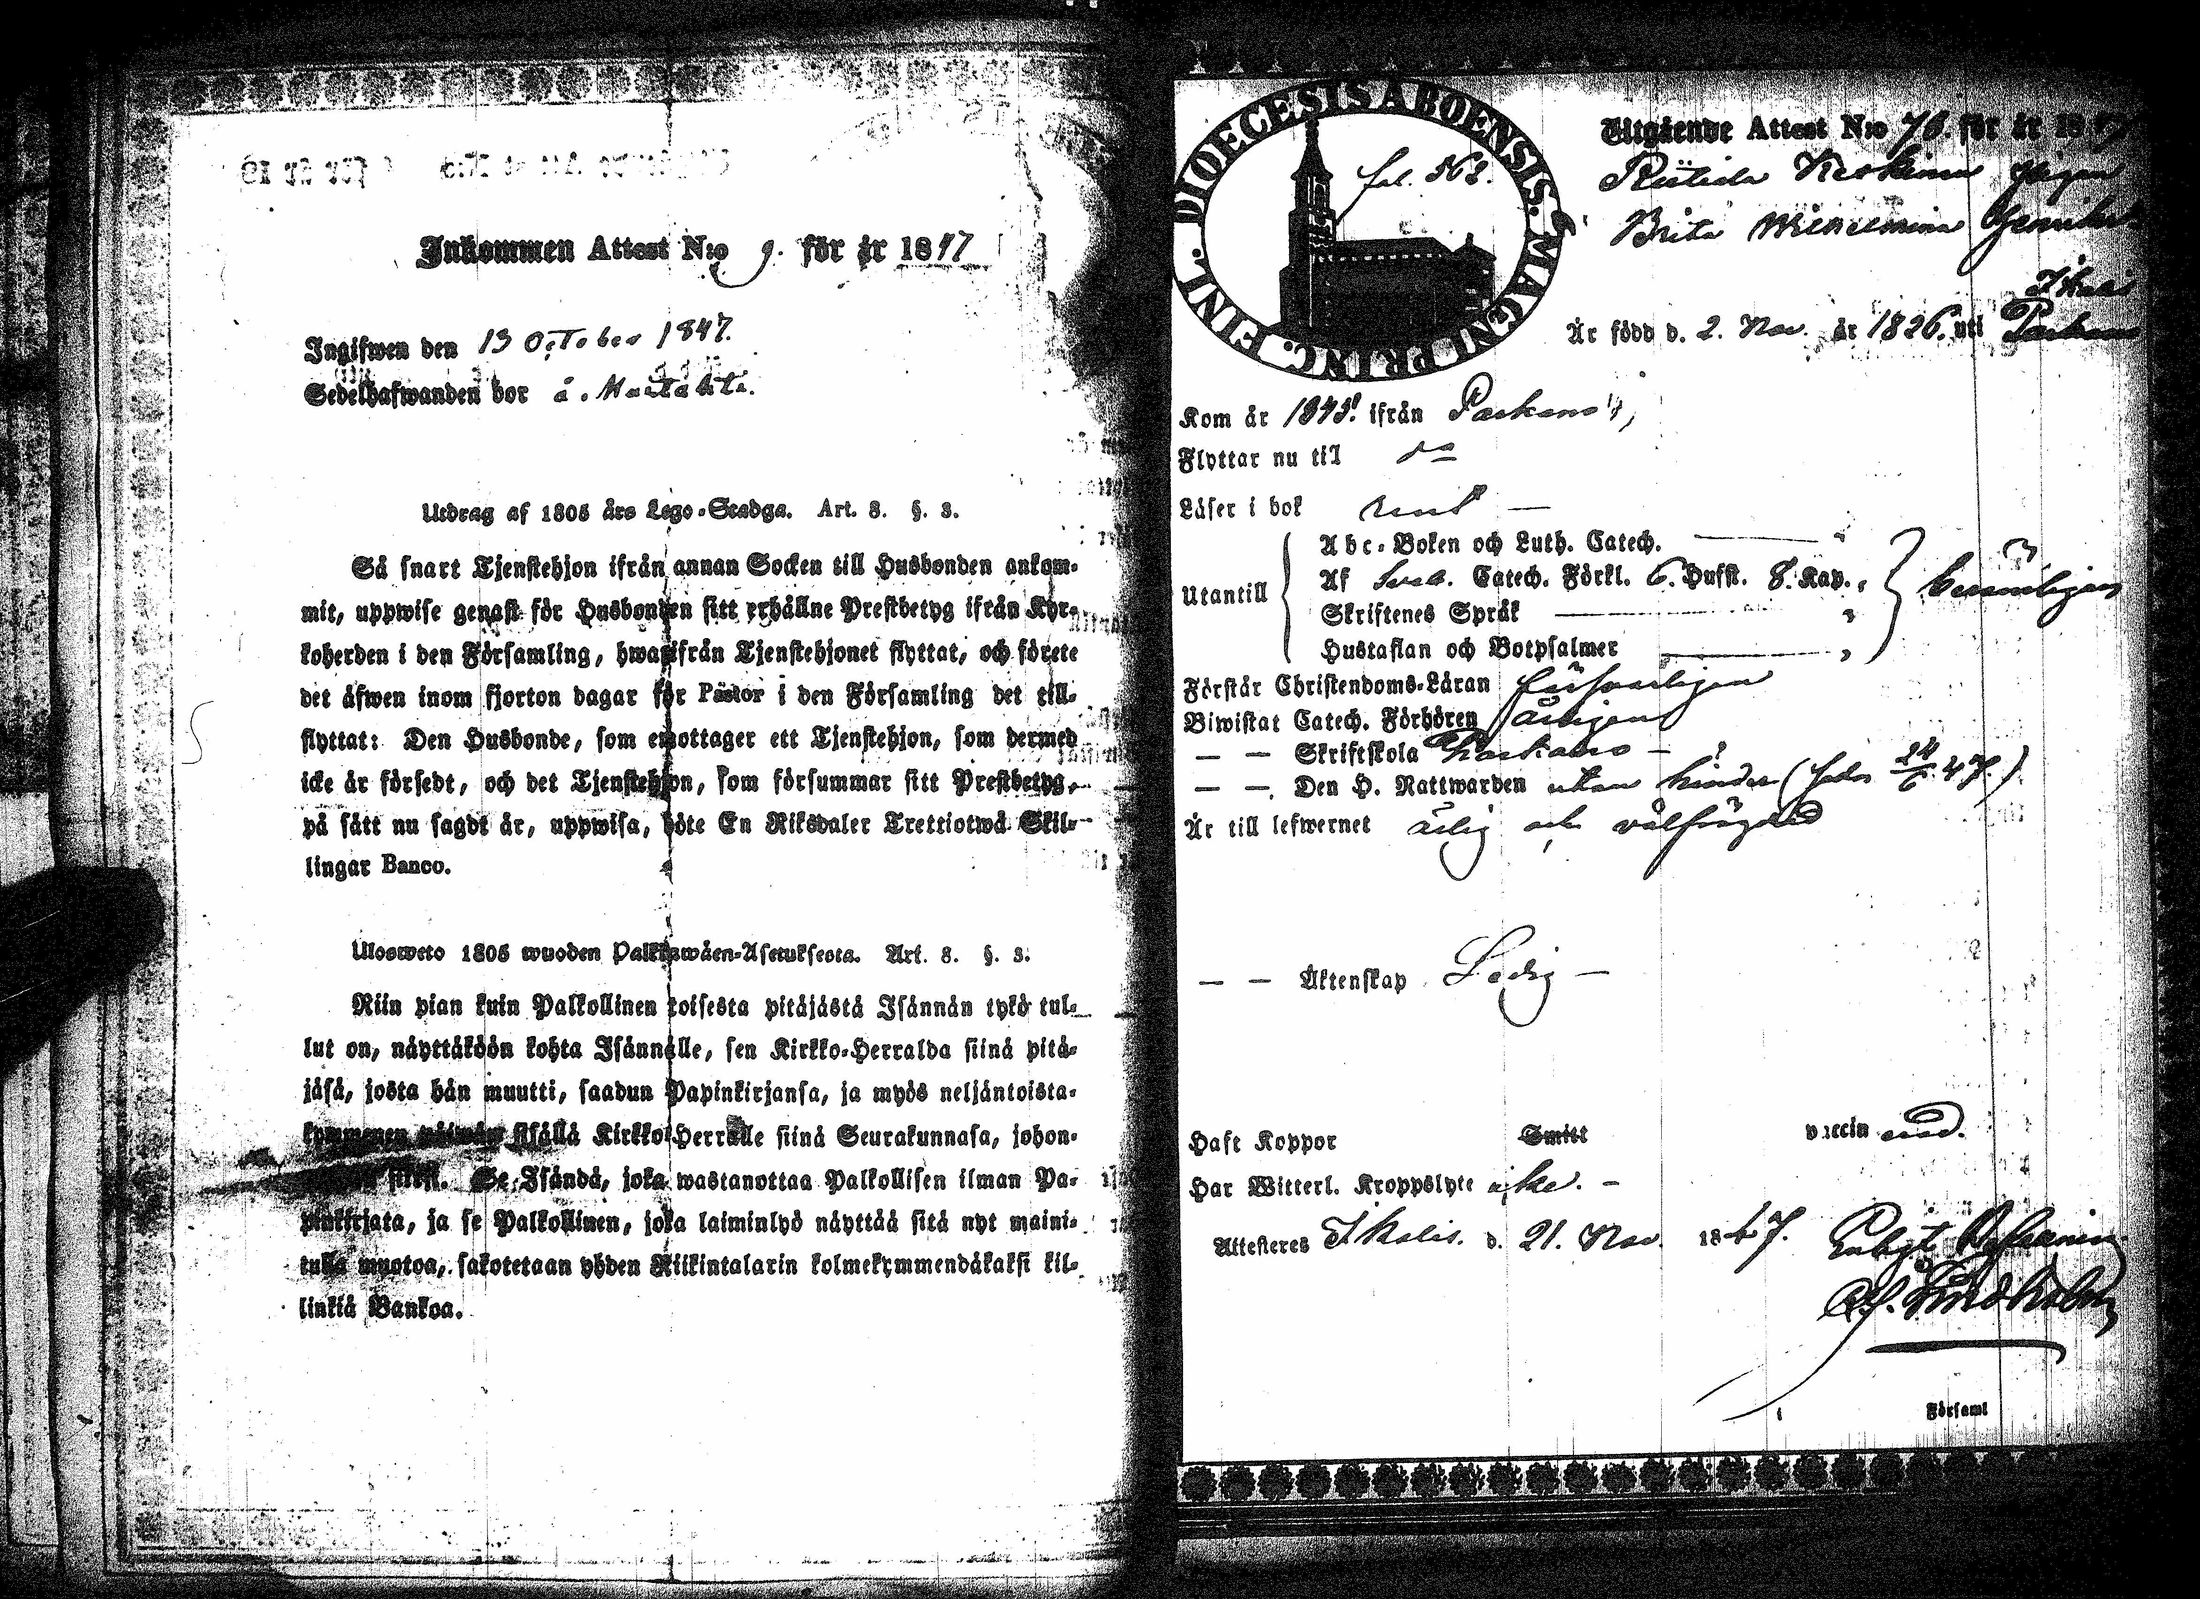 Inkommen Attest N:o 9. för år 1847
Ingifwen den 13 October 1847.
Sedelhafwanden bor å
Utdrag af 1805 års Lego-Stadga. Art. 8. §. 3.
Så snart Tjenstehjon ifrån annan Socken till Husbonden ankom-
mit, uppwise genast för Husbonden sitt erhållne Prestbetyg ifrån Kyr-
koherden i den Församling, hwarifrån Tjenstehjonet flyttat, och förete
det äfwen inom fjorton dagar för Pastor i den Församling det till-
flyttat: Den Husbonde, som emottager ett Tjenstehjon, som dermed
icke är försedt, och det Tjenstehjon, som försummar sitt Prestbetyg,
på sätt nu sagdt är, uppwisa, böte En Riksdaler Trettiotwå Skil-
lingar Banco.
Uloswето 1805 wuoden Palkkawäen-Asetuksesta. Art. 8. §. 3.
Niin pian kuin Palkollinen toisesta pitäjästä Isännän tykö tul-
lut on, näyttäköön kohta Isännälle, sen Kirkko-Herralda siinä pitä-
jäsä, josta hän muutti, saadun Papinkirjansa, ja myös neljäntoista-
kymmenen päiwän sisällä Kirkko-Herralle siinä Seurakunnasa, johon-
siirsi. Se Isändä, joka wastanottaa Palkollisen ilman Pa-
pinkirjata, ja se Palkollinen, joka laiminlyö näyttää sitä nyt maini-
tulla muotoa, sakotetaan yhden Riikintalarin kolmekymmendäkaksi kil-
linkiä Bankoa.
FINL. DIOECESIS ABOENSIS. MAGNI PRINC.
fol. 562.
Utgående Attest N:o 76. för år 18
Keskinen pigan
Brita Wilhelmina
Ikalis
Är född d. 2. Nov. år 1826. uti Parkano
Kom år 1845. ifrån Parkano
Flyttar nu til do
Läser i bok rent
Utantill
Abc-Boken och Luth. Catech.
Af Sveb. Catech. Förkl. 6. Hufst. 8. Kap.
Skriftenes Språk
Hustaflan och Botpsalmer
Förstår Christendoms-Läran försvarligen
Biwistat Catech. Förhören årligen
— — Skriftskola Parkano
— — Den H. Nattwarden utan hinder (sedn 24/6 47.)
Är till lefwernet ärlig och välfrägdad
— — Äktenskap Ledig
Haft Koppor Smitt vaccin
Har Witterl. Kroppslyte icke.
Attesteres Ikalis. d. 21. Nov. 1847.
i Församl